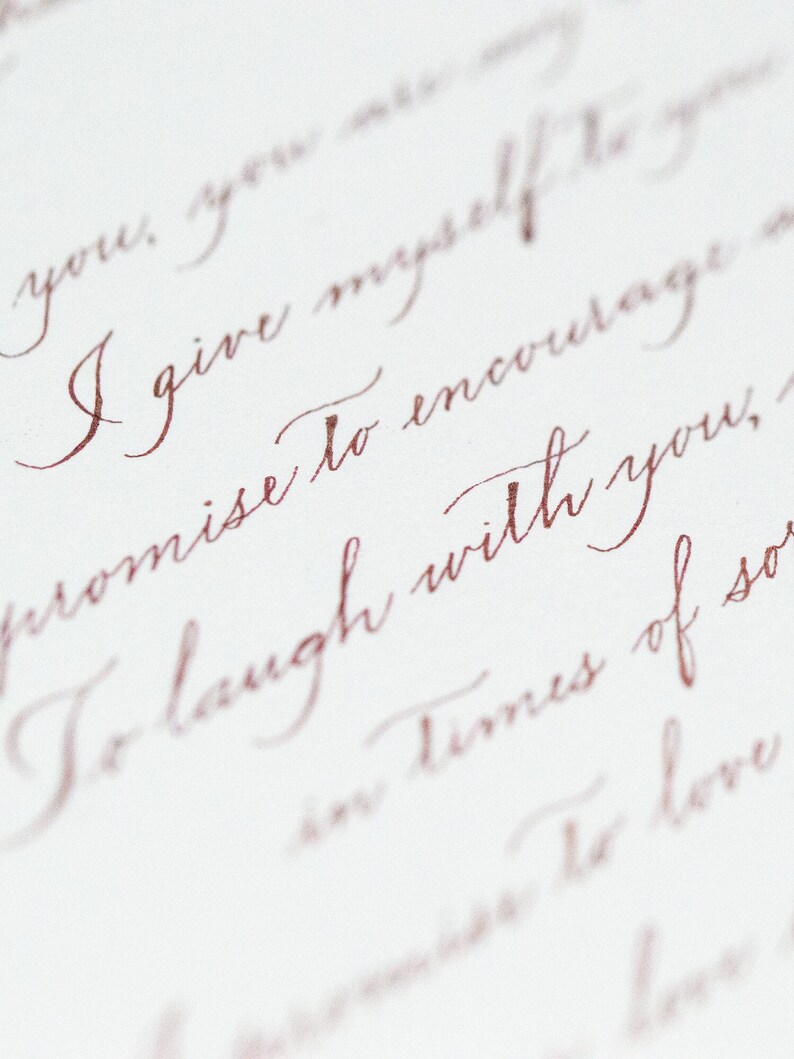 you. you are my
I give myself to you
promise to encourage
To laugh with you,
in times of
I promise to love
love